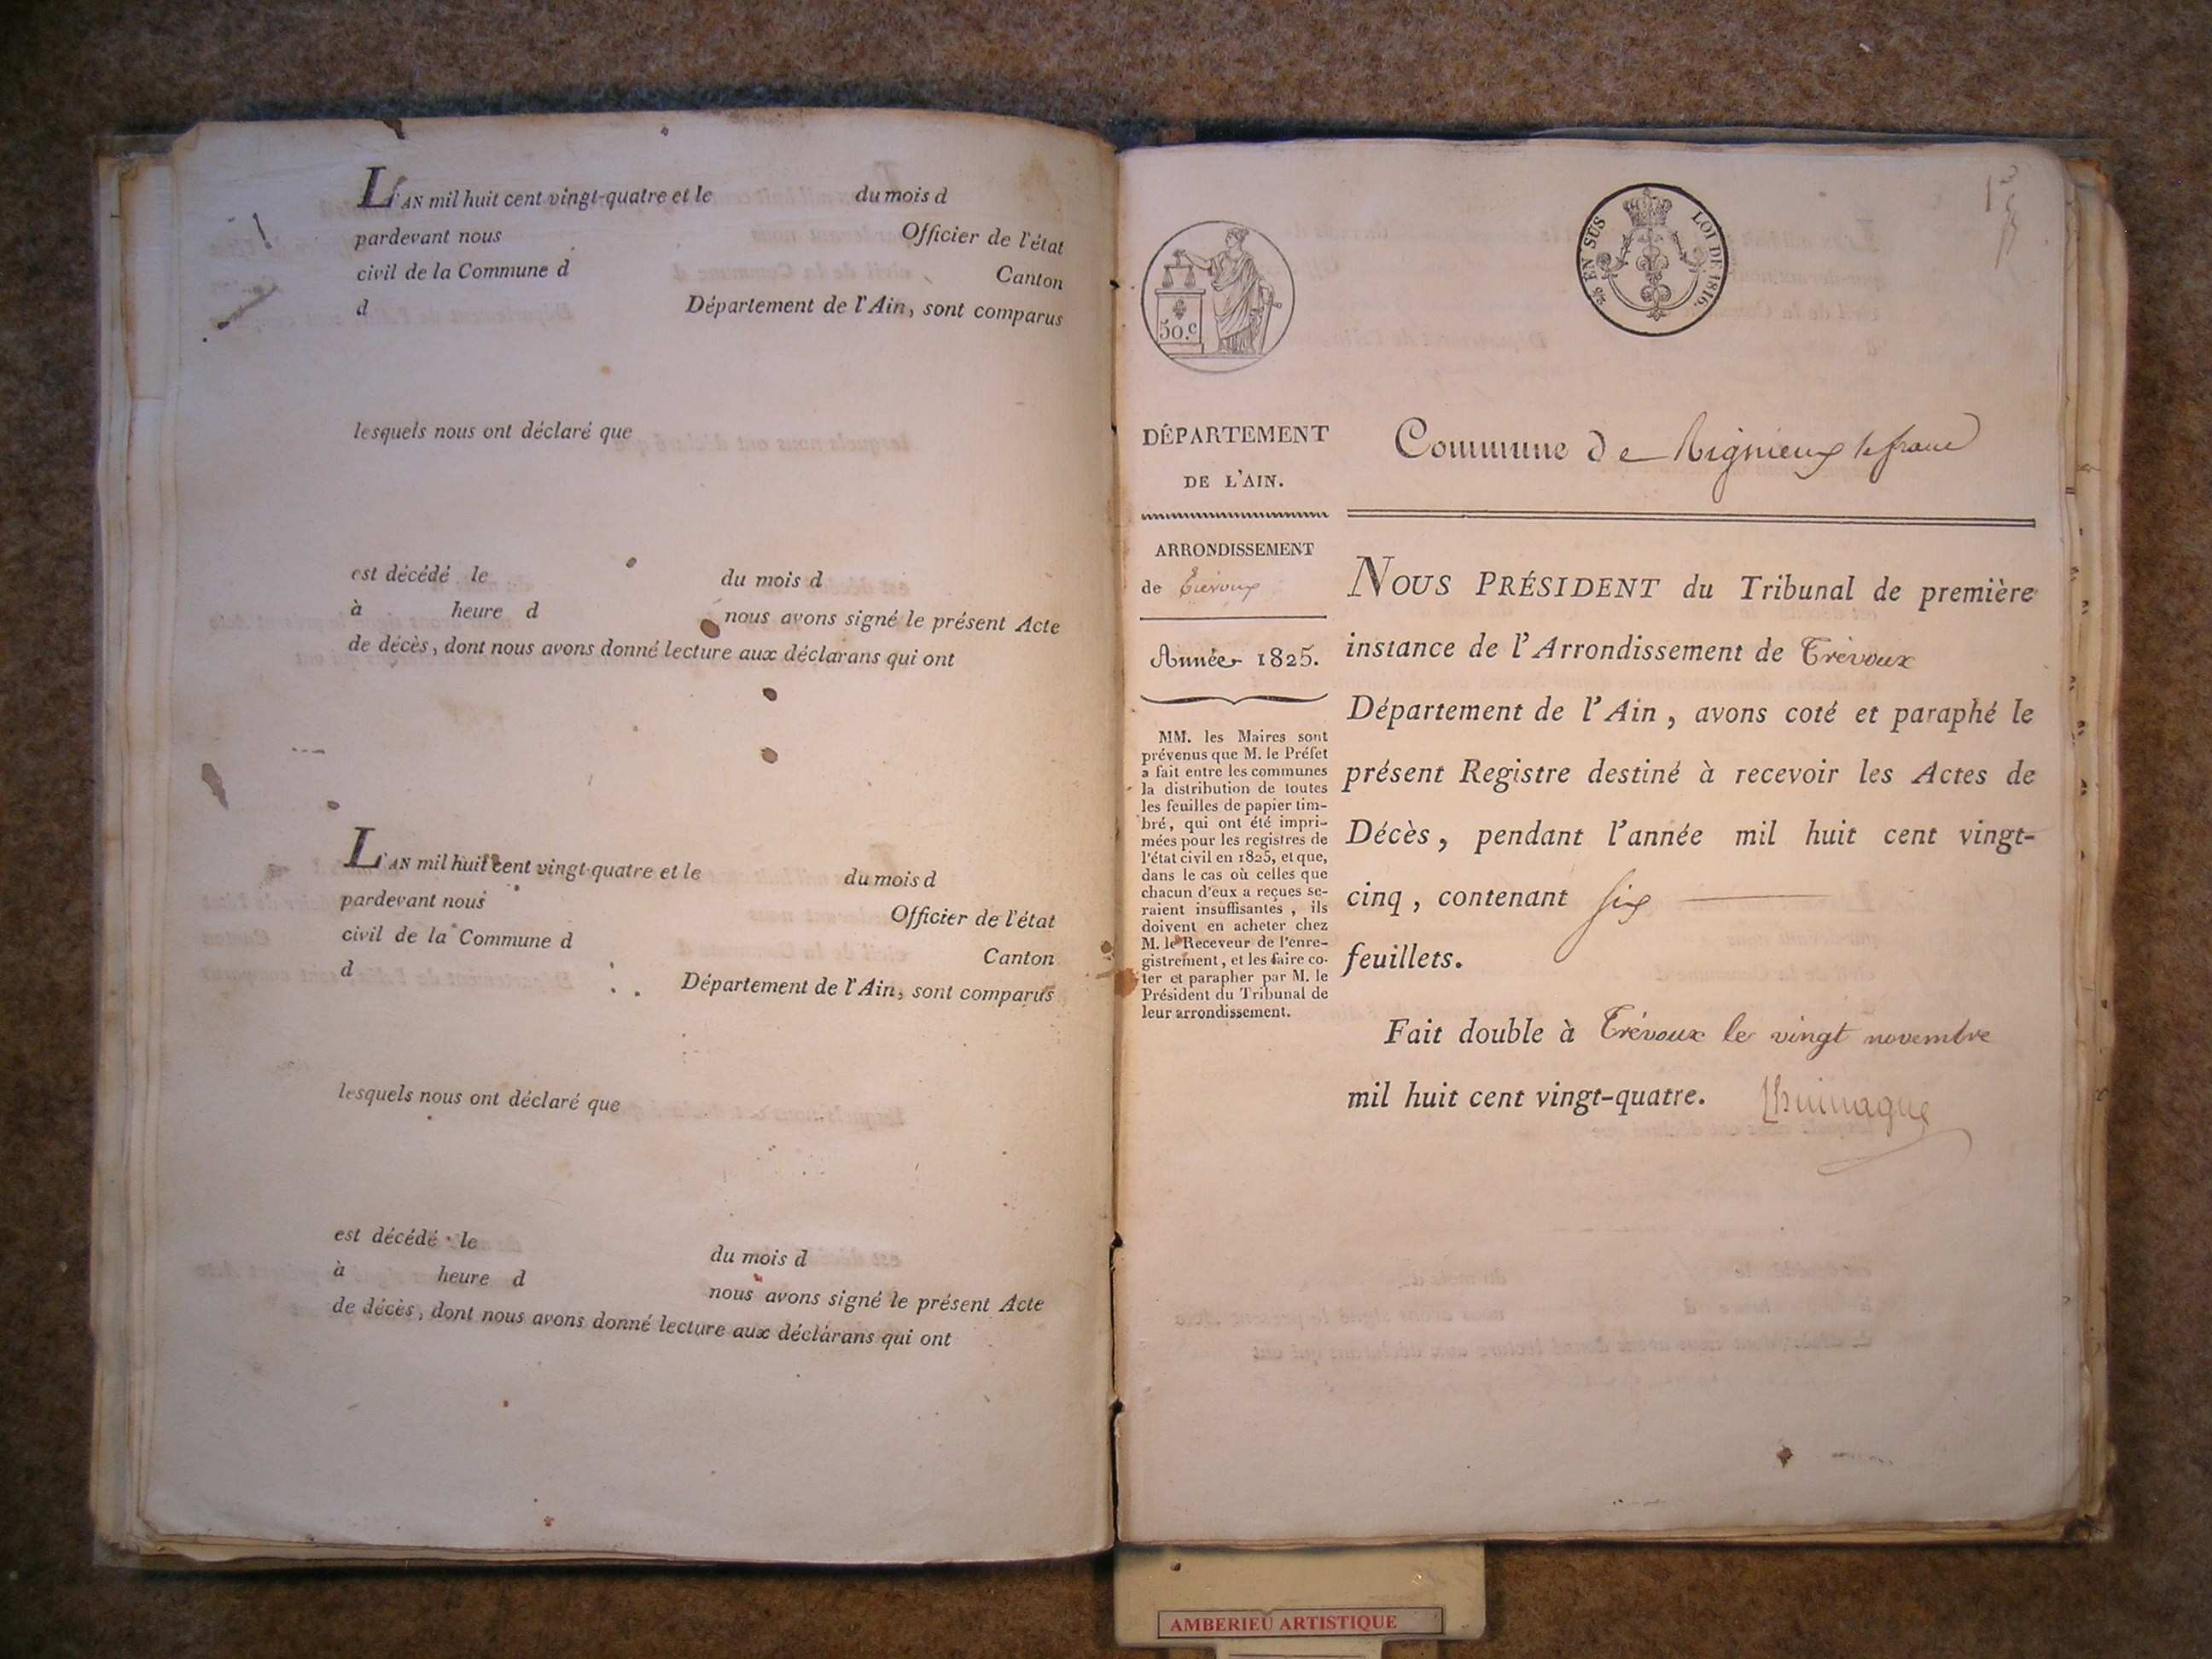 L'AN mil huit cent vingt-quatre et le du mois d
pardevant nous Officier de l'état
civil de la Commune d Canton
d Département de l'Ain, sont comparus
lesquels nous ont déclaré que
est décédé le du mois d
à heure d nous avons signé le présent Acte
de décès, dont nous avons donné lecture aux déclarans qui ont
L'AN mil huit cent vingt-quatre et le du mois d
pardevant nous Officier de l'état
civil de la Commune d Canton
d Département de l'Ain, sont comparus
lesquels nous ont déclaré que
est décédé le du mois d
à heure d nous avons signé le présent Acte
de décès, dont nous avons donné lecture aux déclarans qui ont
50.c
EN SUS LOI DE 1816.
DÉPARTEMENT
DE L'AIN.
ARRONDISSEMENT
de Trévoux
Année 1825.
MM. les Maires sont
prévenus que M. le Préfet
a fait entre les communes
la distribution de toutes
les feuilles de papier tim-
bré, qui ont été impri-
mées pour les registres de
l'état civil en 1825, et que,
dans le cas où celles que
chacun d'eux a reçues se-
raient insuffisantes, ils
doivent en acheter chez
M. le Receveur de l'enre-
gistrement, et les faire co-
ter et parapher par M. le
Président du Tribunal de
leur arrondissement.
Commune de Rignieux le franc
NOUS PRÉSIDENT du Tribunal de première
instance de l'Arrondissement de Trévoux
Département de l'Ain, avons coté et paraphé le
présent Registre destiné à recevoir les Actes de
Décès, pendant l'année mil huit cent vingt-
cinq, contenant six
feuillets.
Fait double à Trévoux le vingt novembre
mil huit cent vingt-quatre.
AMBERIEU ARTISTIQUE